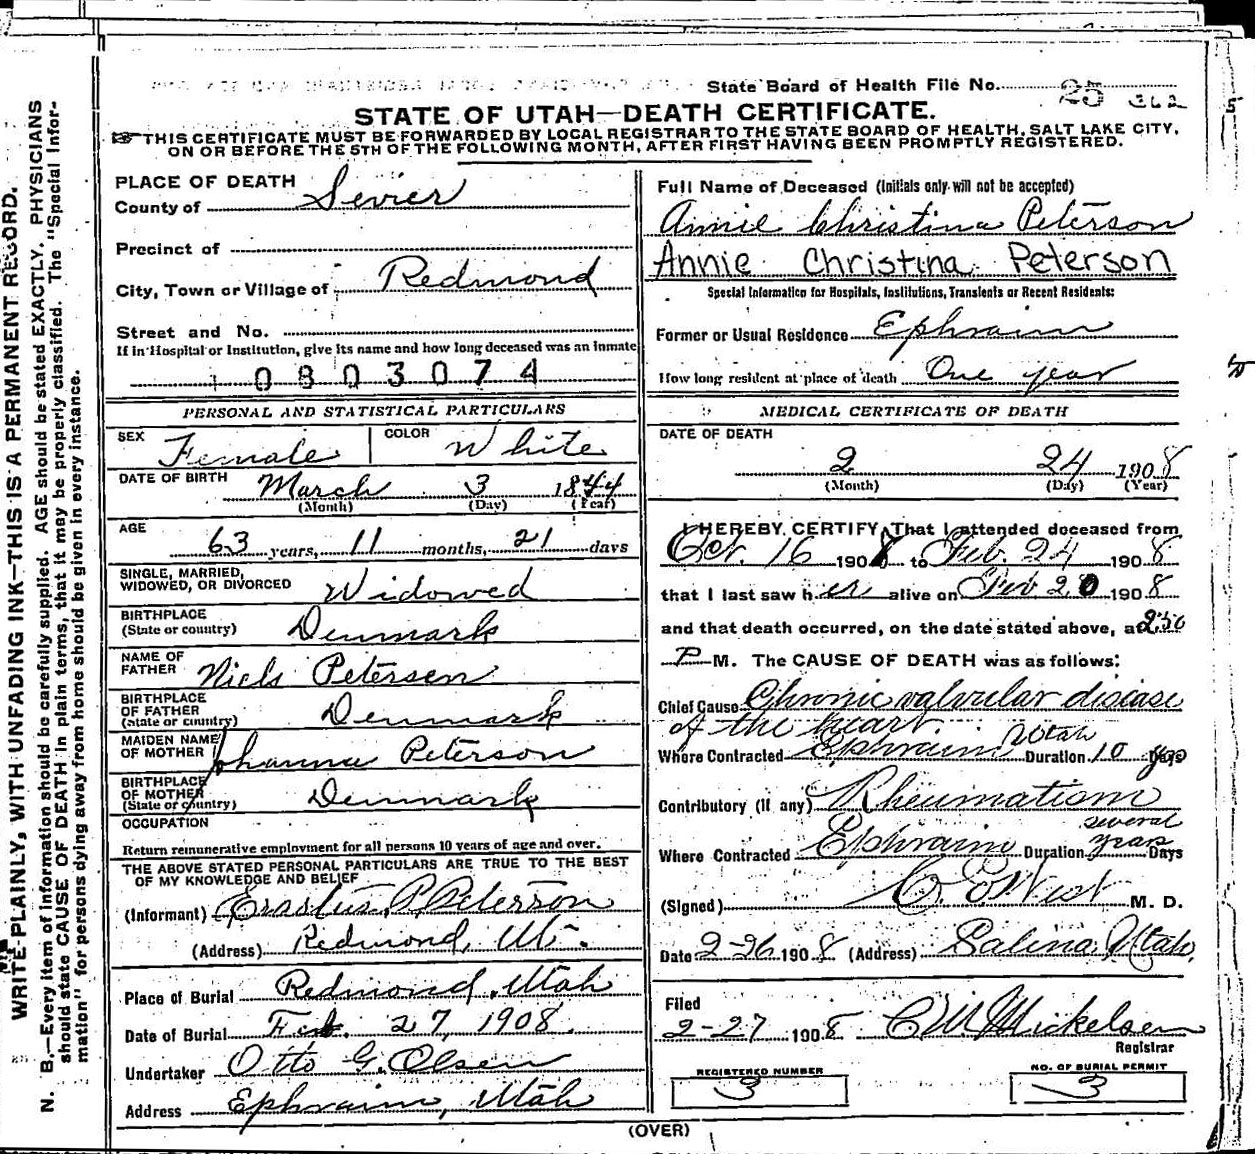 State Board of Health File No. 25 362
STATE OF UTAH—DEATH CERTIFICATE.
THIS CERTIFICATE MUST BE FORWARDED BY LOCAL REGISTRAR TO THE STATE BOARD OF HEALTH, SALT LAKE CITY,
ON OR BEFORE THE 5TH OF THE FOLLOWING MONTH, AFTER FIRST HAVING BEEN PROMPTLY REGISTERED.
WRITE PLAINLY, WITH UNFADING INK—THIS IS A PERMANENT RECORD.
N. B.—Every item of information should be carefully supplied. AGE should be stated EXACTLY. PHYSICIANS
should state CAUSE OF DEATH in plain terms, that it may be properly classified. The "Special Infor-
mation" for persons dying away from home should be given in every instance.
PLACE OF DEATH
County of Sevier
Precinct of
City, Town or Village of Redmond
Street and No.
If in Hospital or Institution, give its name and how long deceased was an inmate
0803074
PERSONAL AND STATISTICAL PARTICULARS
SEX Female COLOR White
DATE OF BIRTH March 3 1844
(Month) (Day) (Year)
AGE
63 years, 11 months, 21 days
SINGLE, MARRIED,
WIDOWED, OR DIVORCED Widowed
BIRTHPLACE
(State or country) Denmark
NAME OF
FATHER Niels Petersen
BIRTHPLACE
OF FATHER
(State or country) Denmark
MAIDEN NAME
OF MOTHER Johanna Peterson
BIRTHPLACE
OF MOTHER
(State or country) Denmark
OCCUPATION
Return remunerative employment for all persons 10 years of age and over.
THE ABOVE STATED PERSONAL PARTICULARS ARE TRUE TO THE BEST
OF MY KNOWLEDGE AND BELIEF
(Informant) Erastus P. Peterson
(Address) Redmond, Ut.
Place of Burial Redmond, Utah
Date of Burial Feb. 27, 1908.
Undertaker Otto G. Olsen
Address Ephraim, Utah
Full Name of Deceased (Initials only will not be accepted)
Annie Christina Peterson
Annie Christina Peterson
Special Information for Hospitals, Institutions, Transients or Recent Residents:
Former or Usual Residence Ephraim
How long resident at place of death One year
MEDICAL CERTIFICATE OF DEATH
DATE OF DEATH
2 24 1908
(Month) (Day) (Year)
I HEREBY CERTIFY, That I attended deceased from
Oct. 16 190 to Feb. 24 1908
that I last saw her alive on Feb 20 1908
and that death occurred, on the date stated above, at 2:30
P M. The CAUSE OF DEATH was as follows:
Chief Cause Chronic valvular disease
of the heart
Where Contracted Ephraim Utah Duration 10 yrs Days
Contributory (if any) Rheumatism
Where Contracted Ephraim Duration several years Days
(Signed) West M. D.
Date 2-26 1908 (Address) Salina, Utah,
Filed
2-27 1908 C.W. Mickelsen
Registrar
REGISTERED NUMBER
3
NO. OF BURIAL PERMIT
3
(OVER)